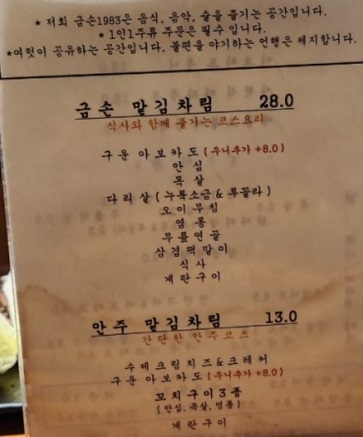 * 저희 금손1983은 음식, 음악, 술을 즐기는 공간입니다.
* 1인1주류 주문은 필수 입니다.
*여럿이 공유하는 공간입니다. 불편을 야기하는 언행은 제지합니다.
금손 맡김차림 28.0
식사와 함께 즐기는 코스요리
구운 아보카도 (우니추가 +8.0)
안심
목살
다리살 (누룩소금 & 루꼴라)
오이무침
염통
무릎연골
삼겹떡말이
식사
계란구이
안주 맡김차림 13.0
간단한 안주코스
수제크림치즈&크래커
구운 아보카도 (우니추가 +8.0)
꼬치구이 3종
(안심, 목살, 염통)
계란구이